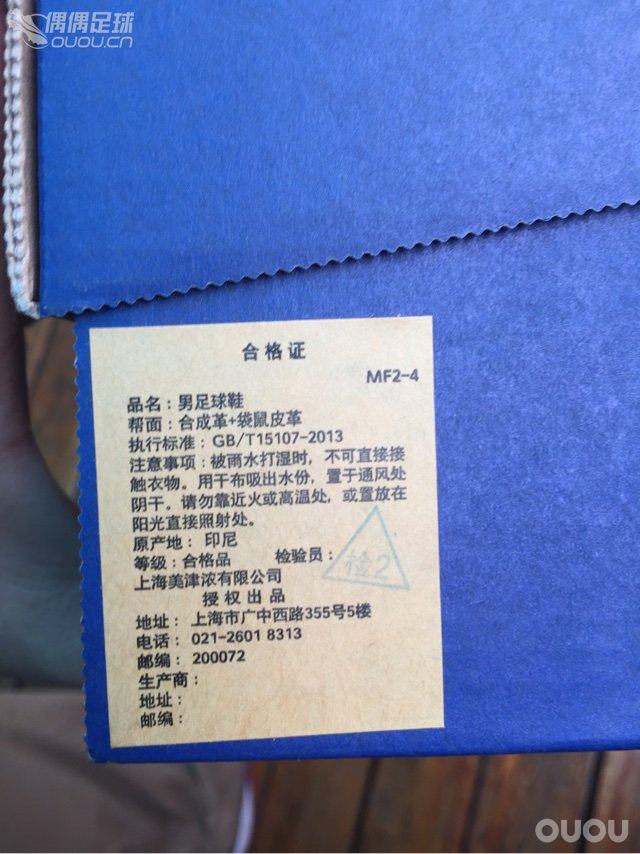 偶偶足球
OUOU.CN
合格证
MF2-4
品名：男足球鞋
帮面：合成革+袋鼠皮革
执行标准：GB/T15107-2013
注意事项：被雨水打湿时，不可直接接
触衣物。用干布吸出水份，置于通风处
阴干。请勿靠近火或高温处，或置放在
阳光直接照射处。
原产地：印尼
等级：合格品 检验员：
检2
上海美津浓有限公司
授权出品
地址：上海市广中西路355号5楼
电话：021-2601 8313
邮编：200072
生产商：
地址：
邮编：
OUOU